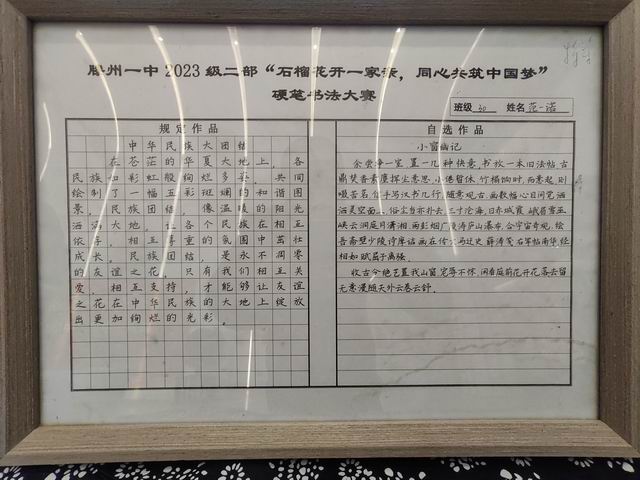 滕州一中 2023 级二部“石榴花开一家亲，同心共筑中国梦”
硬笔书法大赛
班级 30 姓名 范一诺
规定作品
中华民族大团结
在苍茫的华夏大地上，各
民族如彩虹般绚烂多姿，共同
绘制了一幅五彩斑斓的和谐图
景，民族团结，像温暖的阳光
洒满大地，让各个民族在相互
依存，相互尊重的氛围中茁壮
成长，民族团结，是永不凋零
的友谊之花，只有我们相互关
爱，相互支持，才能够让友谊
之花在中华民族的大地上绽放
出更加绚烂的光彩。
自选作品
小窗幽记
余尝净一室，置一几，种快意书，放一本旧法帖，古
鼎焚香，素麈挥尘，意思小倦，暂休竹榻，饷时而起，则
啜苦茗，信手写汉书几行，随意观古画数幅，心目间觉洒
洒灵空，面上俗尘当亦扑去三寸，沧海日，赤城霞，峨眉雪，巫
峡云，洞庭月，潇湘雨，彭烟，广陵涛，庐山瀑布，合宇宙奇观，绘
吾斋壁，少陵诗，摩诘画，左传文，马迁史，薛涛笺，右军帖，南华经，
相如赋，屈子离骚，
收古今绝艺，置我山窗，宠辱不惊，闲看庭前花开花落，去留
无意，漫随天外云卷云舒。